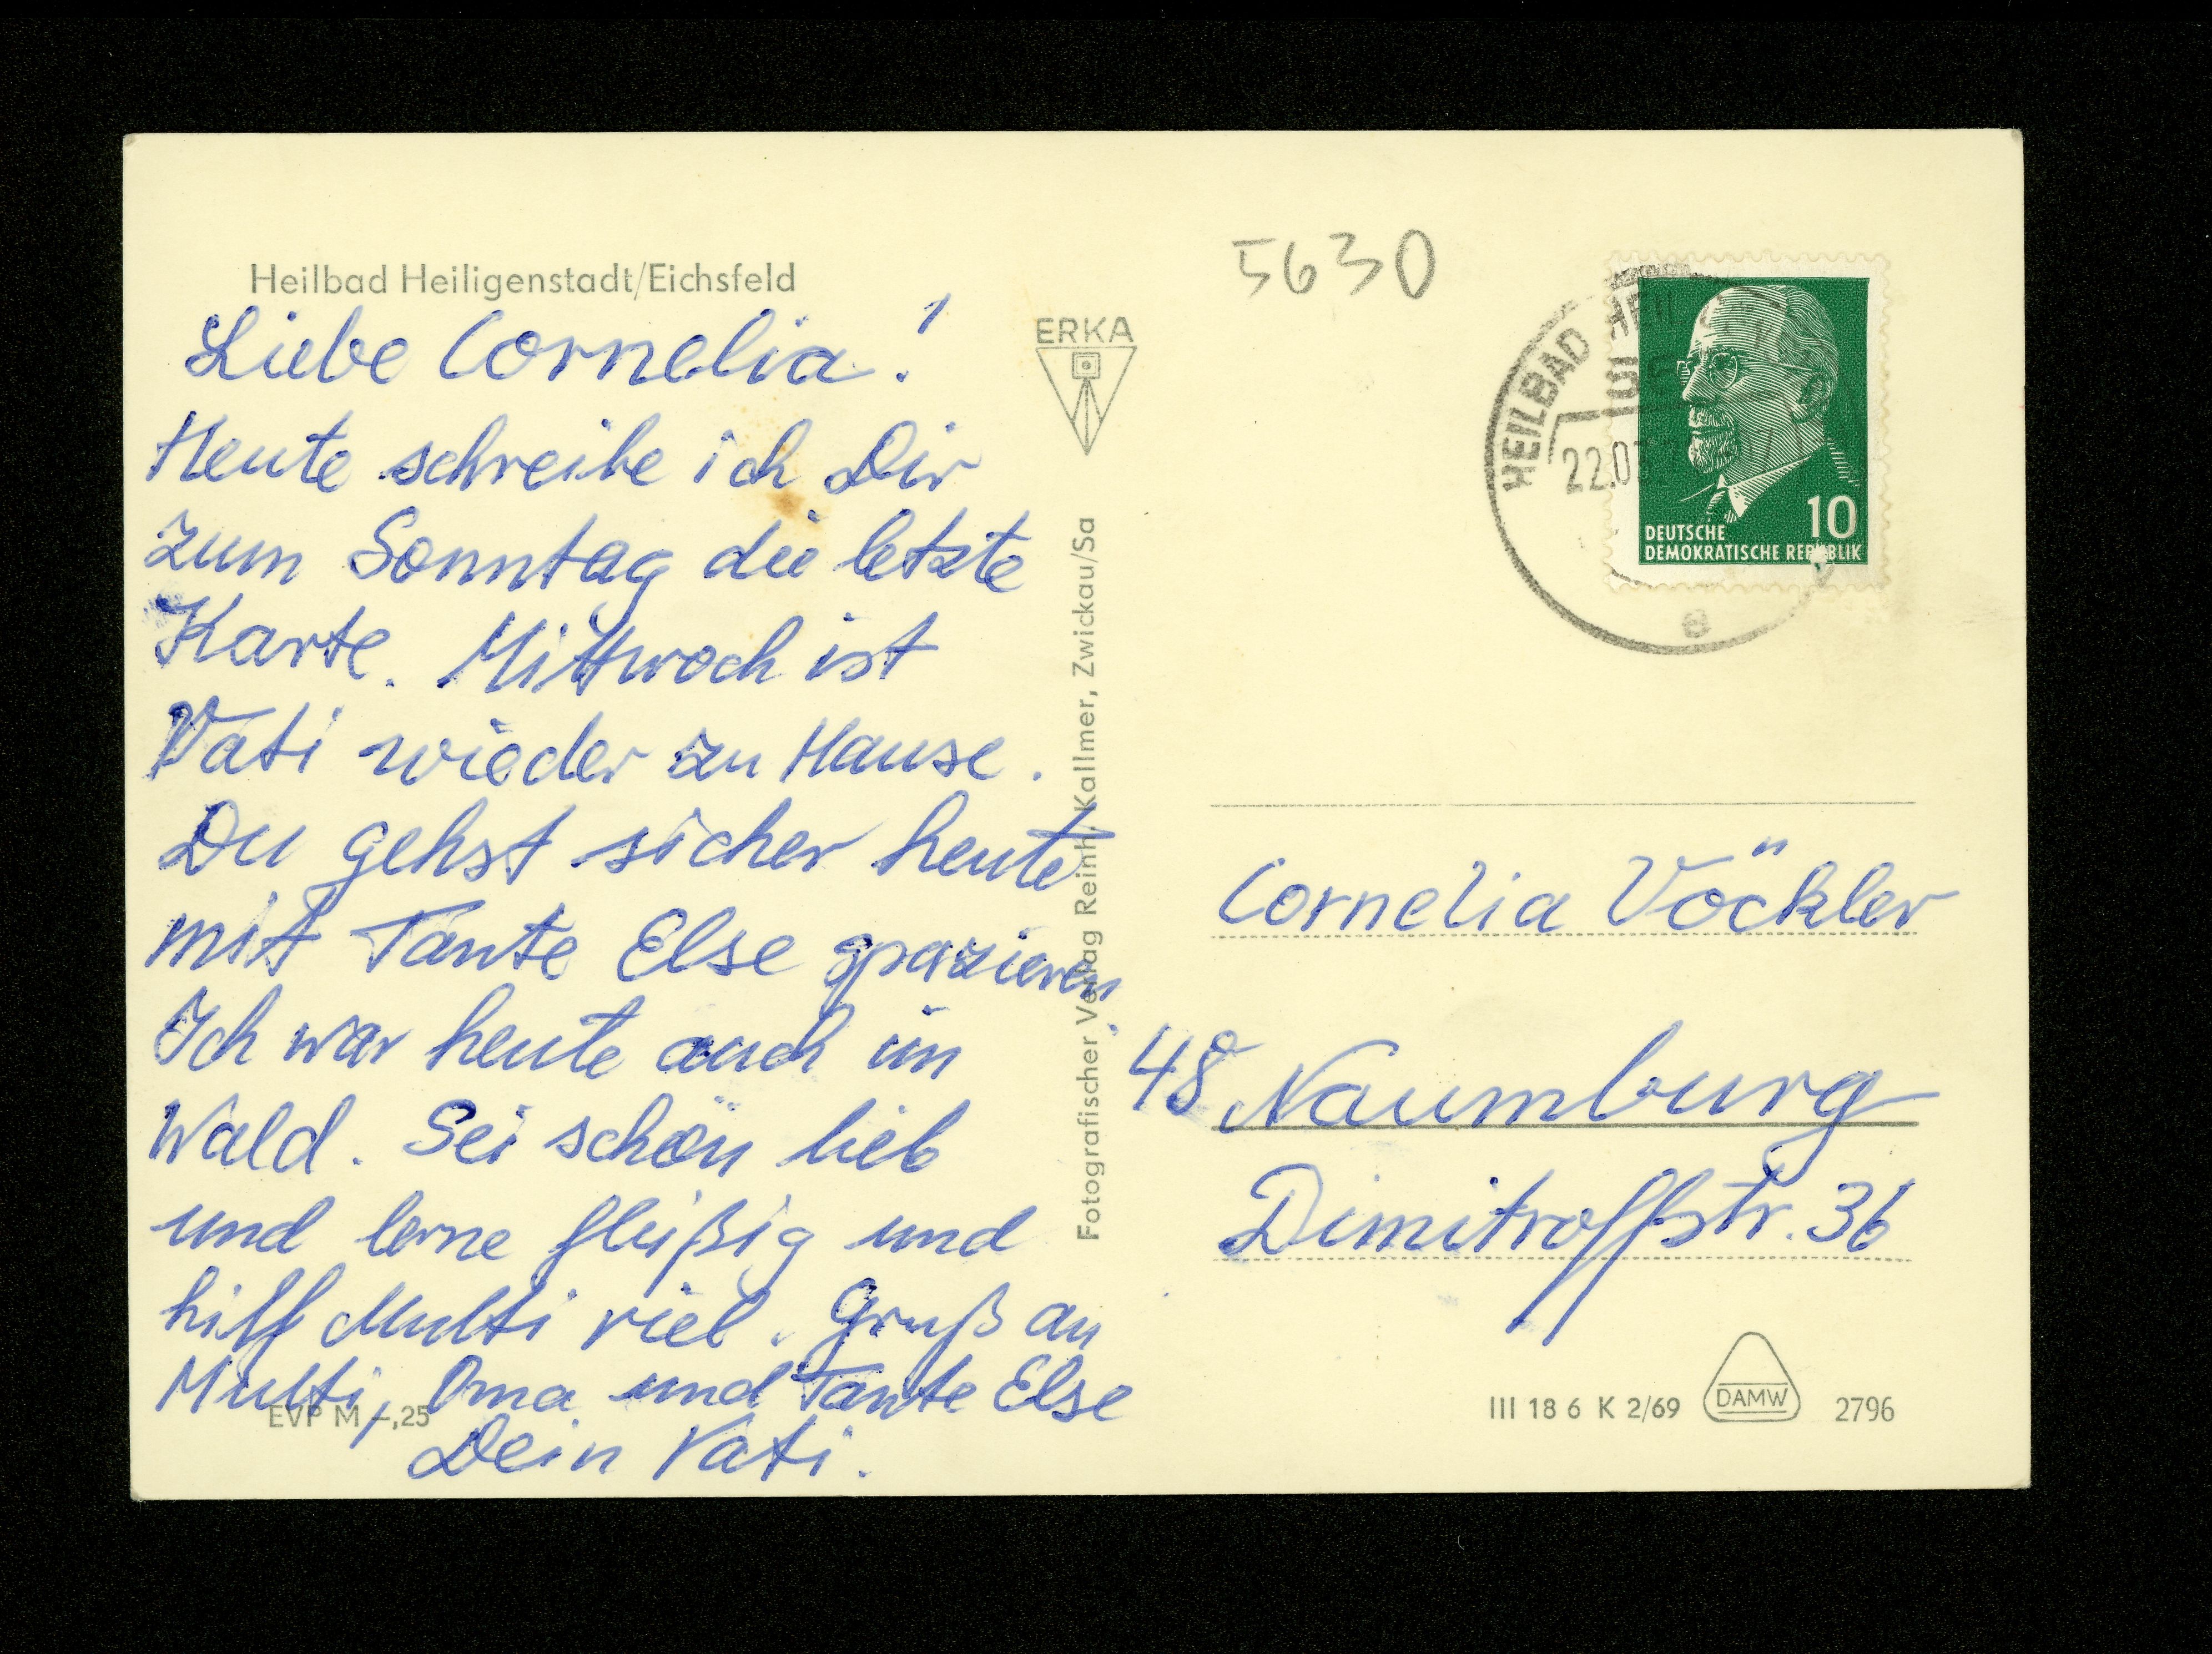 Heilbad Heiligenstadt/Eichsfeld
Liebe Cornelia!
Heute schreibe ich Dir
zum Sonntag die letzte
Karte. Mittwoch ist
Vati wieder zu Hause.
Du gehst sicher heute
mit Tante Else spazieren.
Ich war heute auch im
Wald. Sei schön lieb
und lerne fleißig und
hilf Mutti viel. Gruß an
Mutti, Oma und Tante Else
Dein Vati.
EVP M –,25
ERKA
Fotografischer Verlag Reinh. Kallmer, Zwickau/Sa
5630
HEILBAD
22.0
e
10
DEUTSCHE
DEMOKRATISCHE REPUBLIK
Cornelia Vöckler
48 Naumburg
Dimitroffstr. 36
III 18 6 K 2/69 DAMW 2796